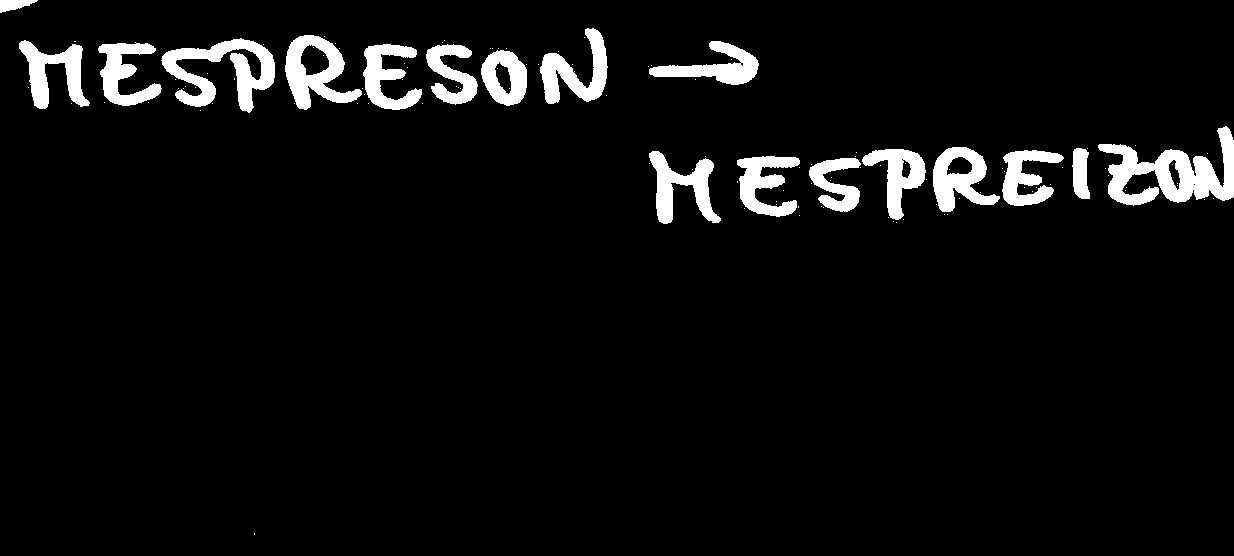 MESPRESON →
MESPREIZON